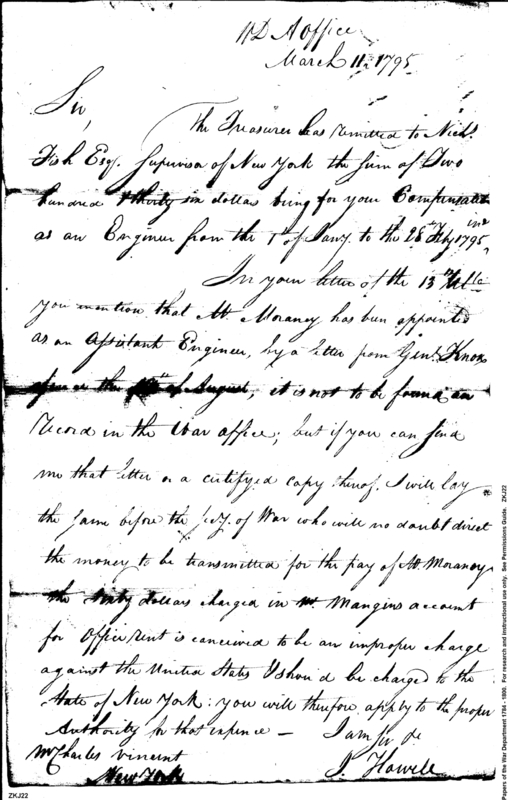 W D A Office
March 11th 1795
Sir,
The Treasurer has remitted to Nichs
Fish Esqr. Supervisor of New York the Sum of Two
hundred & thirty six dollars being for your Compensation
as an Engineer from the 1st of Jany. to the 28th Feby 1795
In your letter of the 13th Ulto
you mention that Mr. Moraney has been appointed
as an Assistant Engineer, by a letter from Genl. Knox
the of August, it is not to be found on
record in the War office; but if you can send
me that letter or a certifyed copy thereof I will lay
the same before the Secy. of War who will no doubt direct
the money to be transmitted for the pay of Mr Moraney
the Sixty dollars charged in Mr. Mangins account
for office rent is conceived to be an improper charge
against the United States & should be charged to the
State of New York: you will therefore apply to the proper
Authority for that expence — I am Sir &c
Mr Charles Vincent
New York
J. Howell
ZKJ22
Papers of the War Department 1784 - 1800. For research and instructional use only. See Permissions Guide. ZKJ22